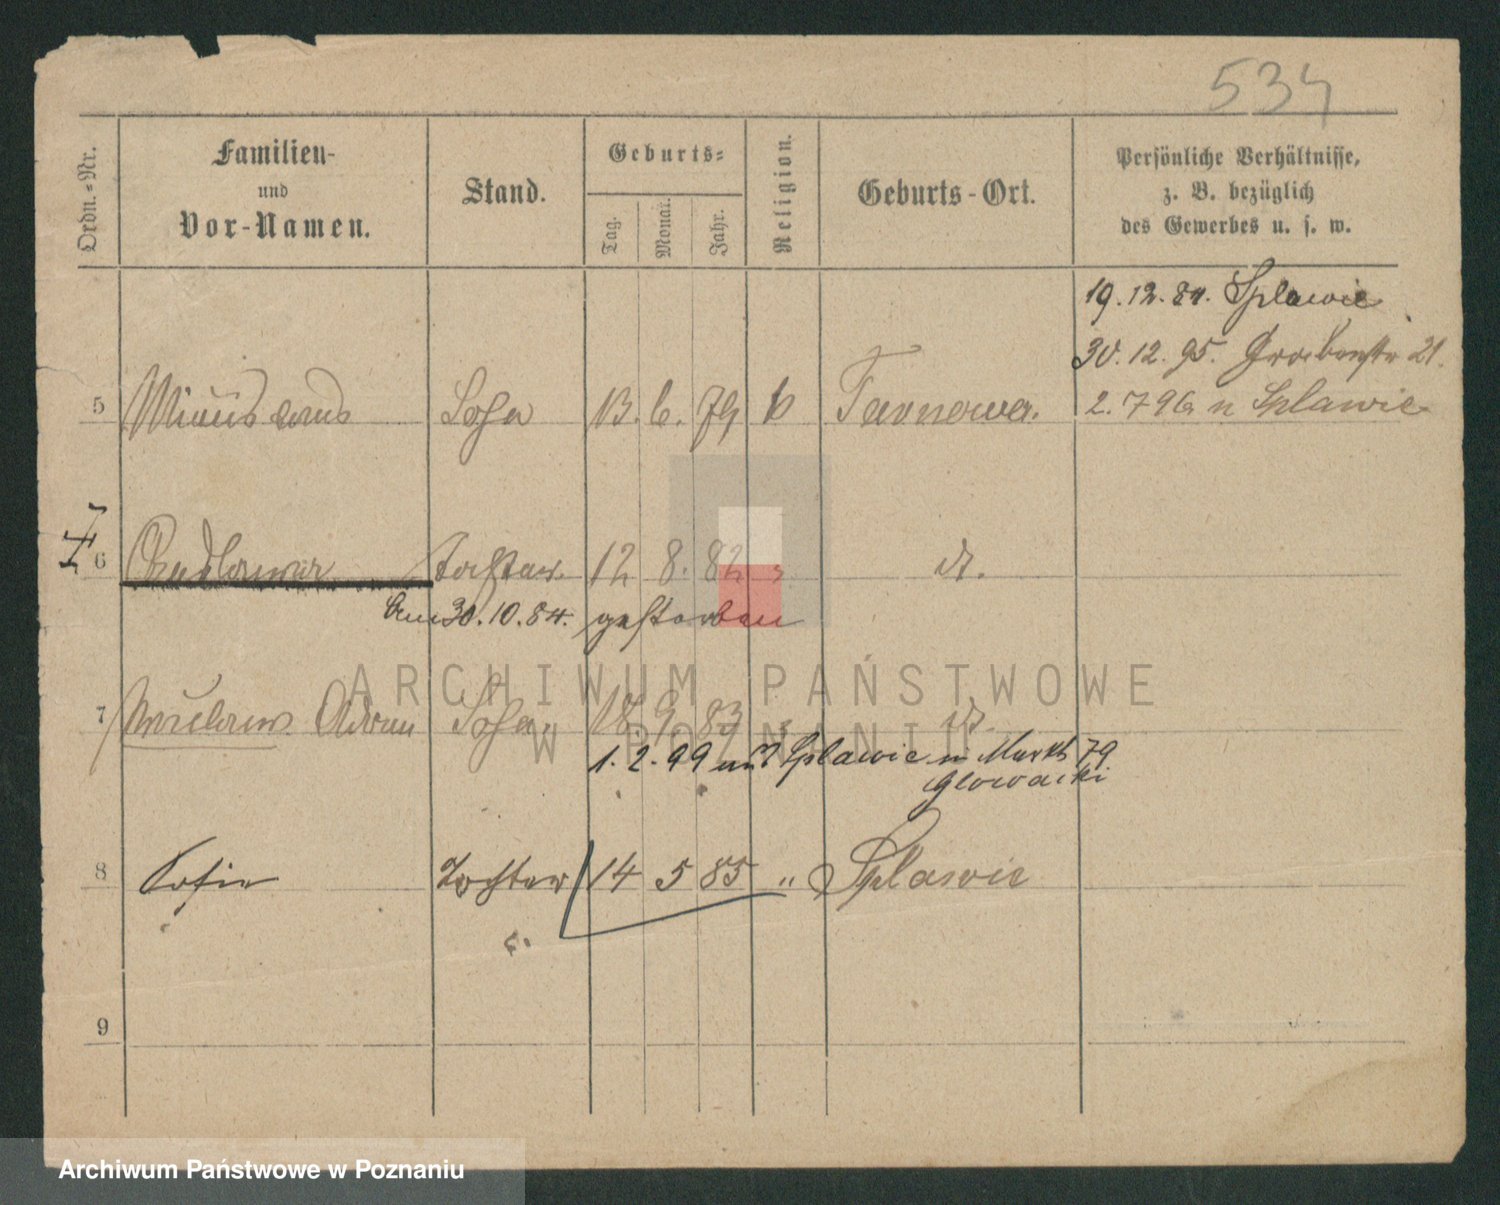 534
Ordn.-Nr.
Familien-
und
Vor-Namen.
Stand.
Geburts-
Tag.
Monat.
Jahr.
Religion.
Geburts-Ort.
Persönliche Verhältnisse,
z. B. bezüglich
des Gewerbes u. s. w.
19.12.84. Splawie
30.12.95. 21.
5 Sohn 13. 6. 79 k Tarnowa. 2.7 96 n Splawie
6 Tochter 12 8. 82 " d.
am 30.10.84. gestorben
7 Adam Sohn 18. 9. 83 " d.
1. 2. 99 auf Splawie n Markt 79
Glowacki
8 Sofie Tochter 14 5 85 " Splawie
9
ARCHIWUM PAŃSTWOWE
W POZNANIU
Archiwum Państwowe w Poznaniu